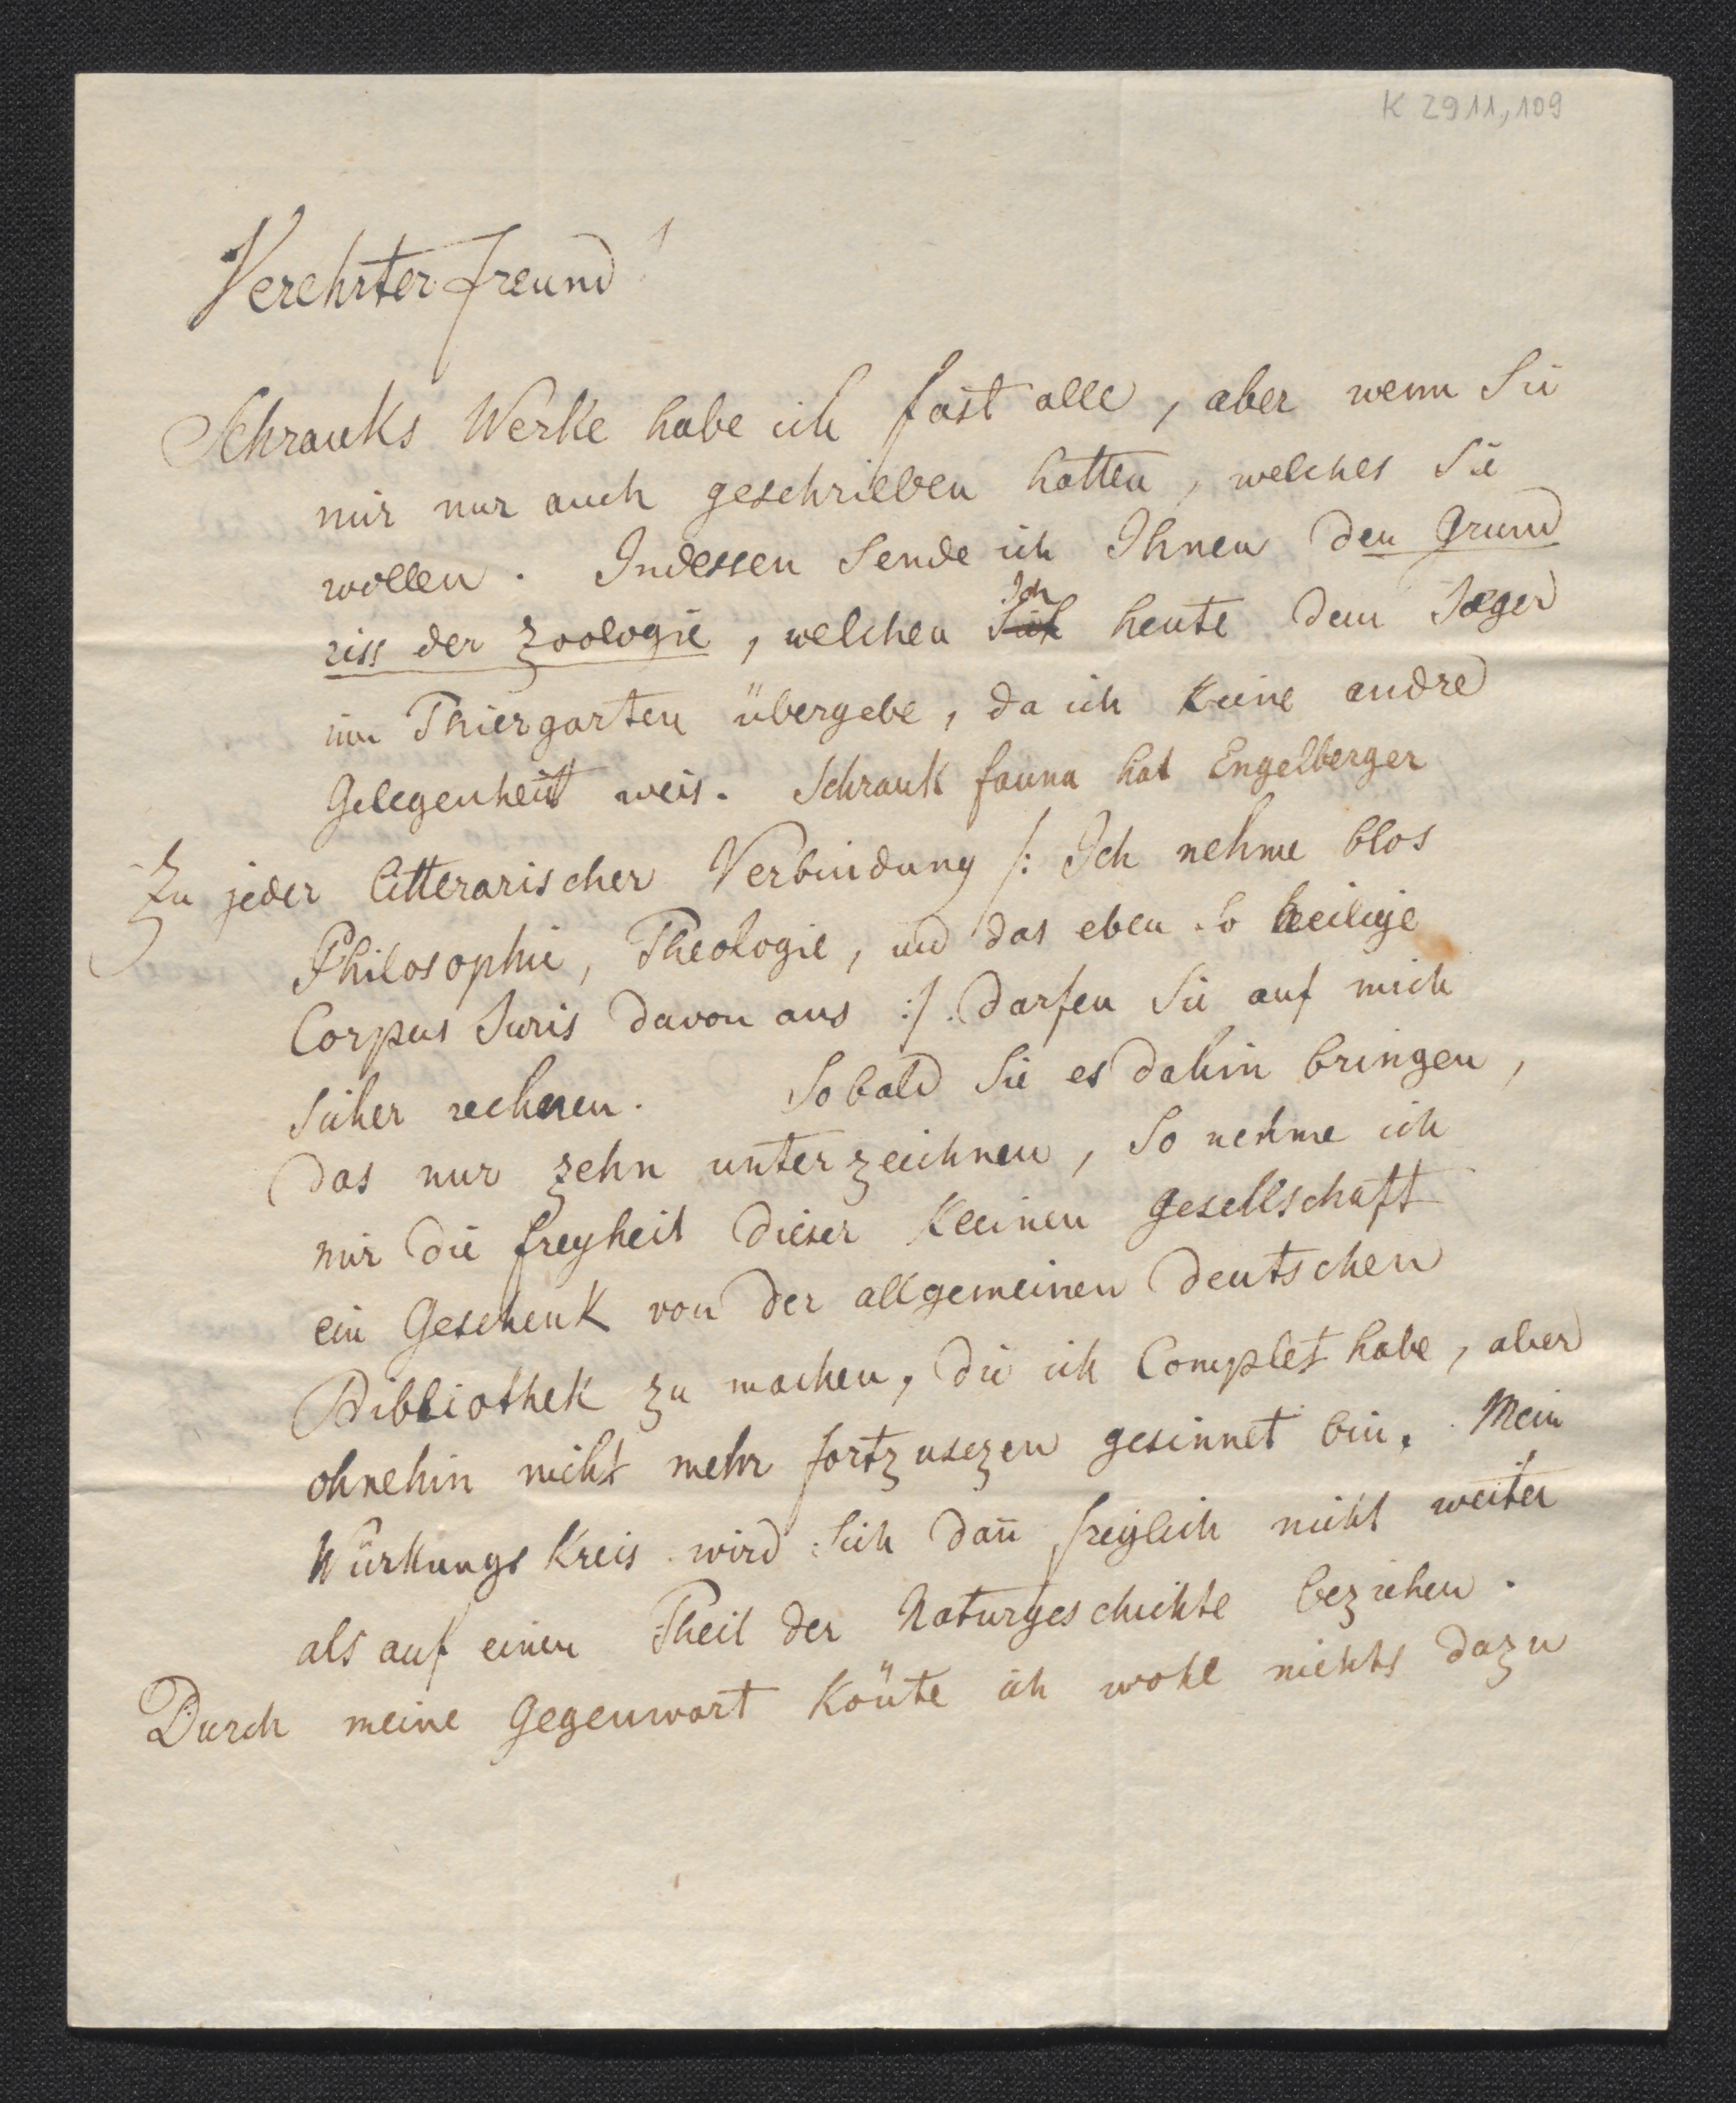 K 2911,109
Verehrter Freund!
Schranks Werke habe ich fast alle, aber wenn Sie
mir nur auch geschrieben hätten, welches Sie
wollen. Indessen sende ich Ihnen den Grund
riss der Zoologie, welchen Ich heute dem Jæger
im Thiergarten übergebe, da ich keine andre
Gelegenheit weis. Schrank fauna hat Engelberger
Zu jeder litterarischer Verbindung /: Ich nehme blos
Philosophie, Theologie, und das eben so heilige
Corpus Juris davon aus :/ darfen Sie auf mich
sicher rechnen. Sobald Sie es dahin bringen,
das nur zehn unterzeichnen, so nehme ich
mir die freyheit dieser kleinen Gesellschaft
ein Geschenk von der allgemeinen deutschen
Bibliothek zu machen, die ich Complet habe, aber
ohnehin nicht mehr fortzusezen gesinnet bin. Mein
Würkungs Kreis wird sich dañ freylich nicht weiter
als auf einen Theil der Naturgeschichte beziehen.
Durch meine Gegenwart köñte ich wohl nichts dazu